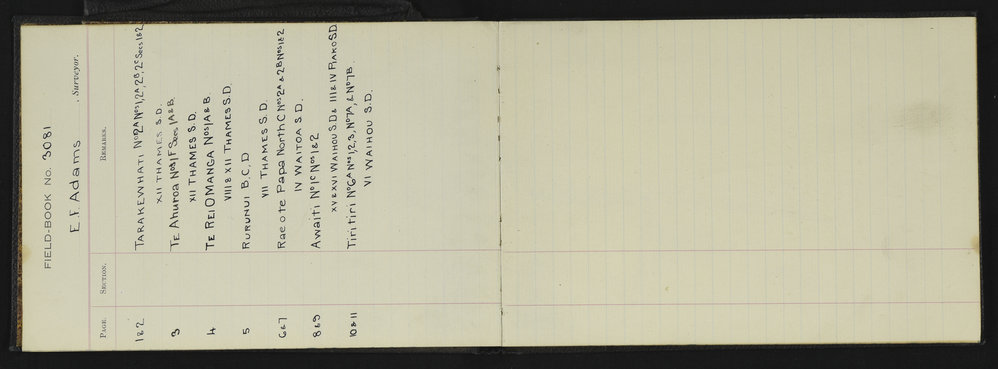 FIELD-BOOK No. 3081
E. F. Adams, Surveyor.
PAGE. SECTION. REMARKS.
1 & 2 TARAKEWHATI No 2A Nos 1, 2A, 2B, 2C Secs 1 & 2
XII THAMES S.D.
3 TE Ahuroa Nos 1F Secs 1A & B
XII THAMES S.D.
4 TE REIOMANGA Nos 1A & B.
VIII & XII THAMES S.D.
5 RURUNUI B, C, D
VII THAMES S.D.
6 & 7 Rae o te Papa North C Nos 2A & 2B Nos 1 & 2
IV WAITOA S.D.
8 & 9 Awaiti No 1C Nos 1 & 2
XV & XVI WAIHOU S.D & III & IV PIAKO S.D
10 & 11 Tiritiri No 6A Nos 1, 2, 3, No 7A, & No 7B
VI WAIHOU S.D.